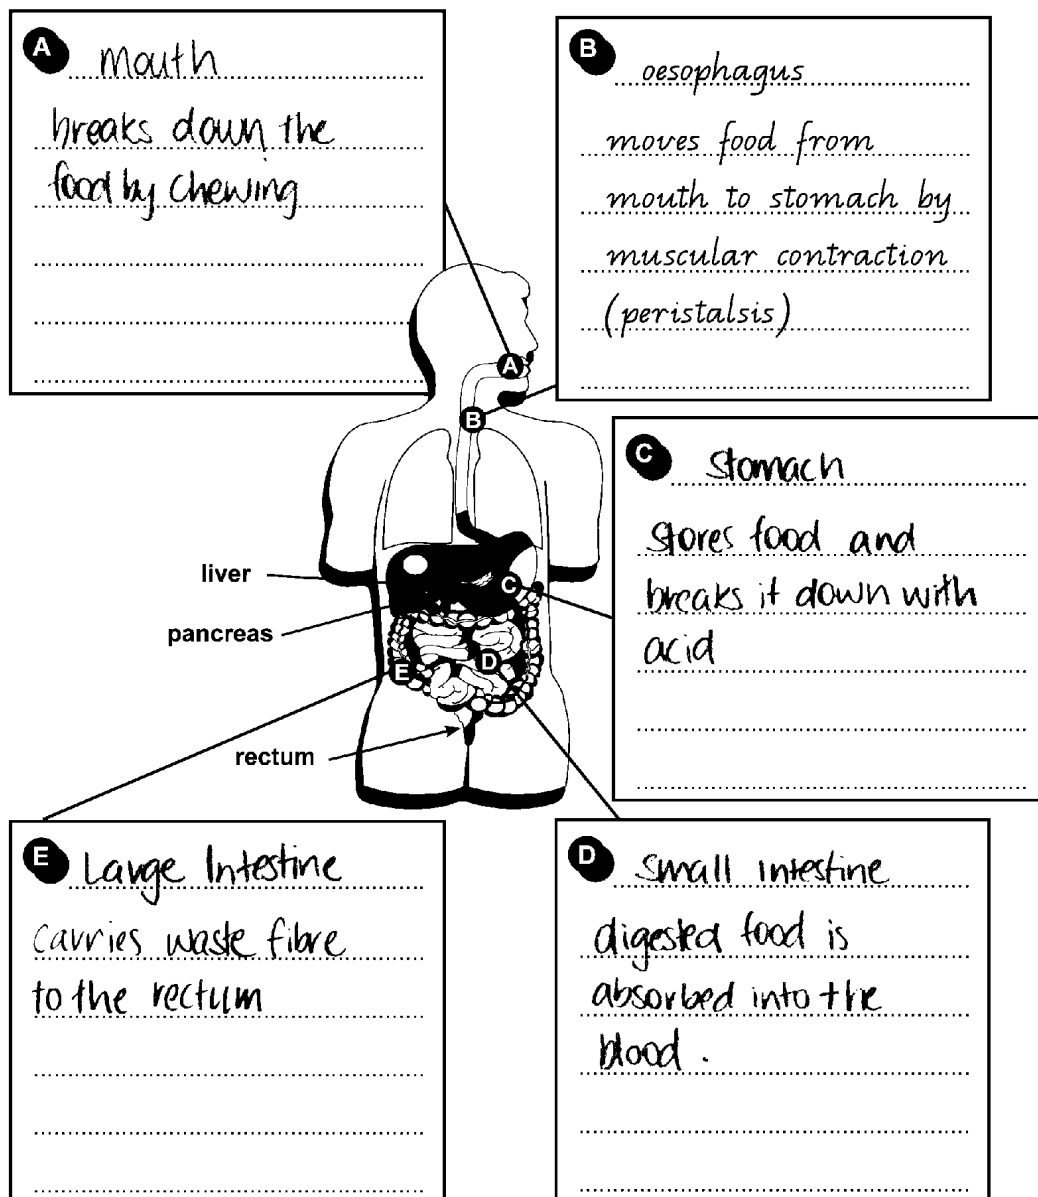 A
Mouth
breaks down the
food by chewing
B
oesophagus
moves food from
mouth to stomach by
muscular contraction
(peristalsis)
A
B
C
Stomach
Stores food and
breaks it down with
acid
liver
pancreas
C
D
E
rectum
E
Large Intestine
carries waste fibre
to the rectum
D
Small intestine
digested food is
absorbed into the
blood.